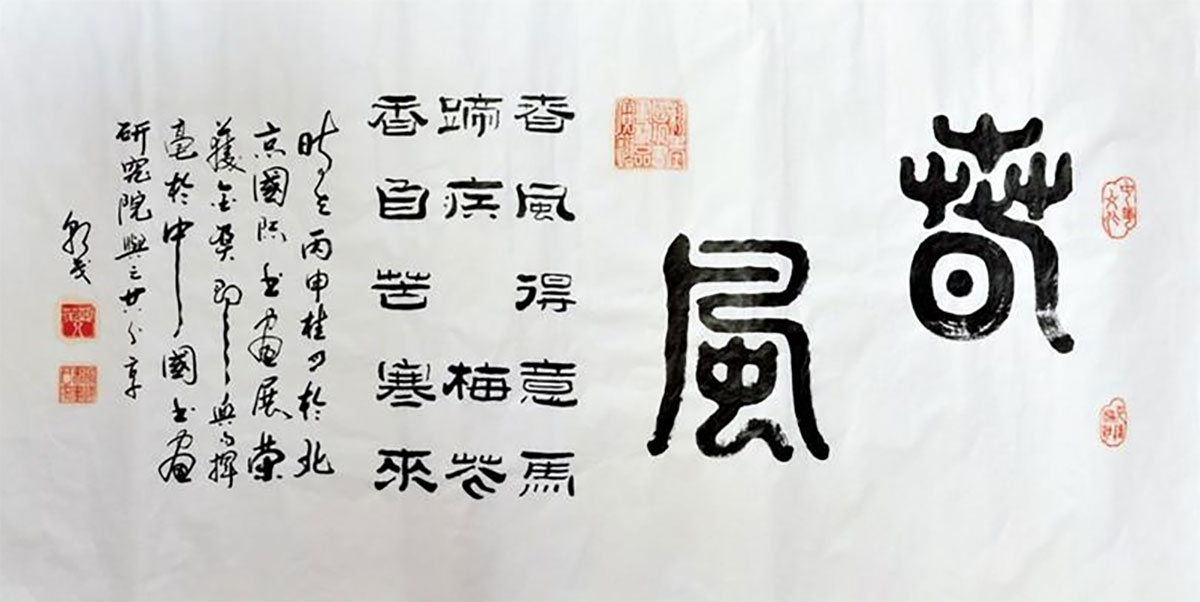 春
風
春風得意馬
蹄疾 梅花
香自苦寒來
時在丙申桂月於北
京國際書畫展榮
獲金獎即興揮
毫於中國書畫
研究院與之共分享
中華文化